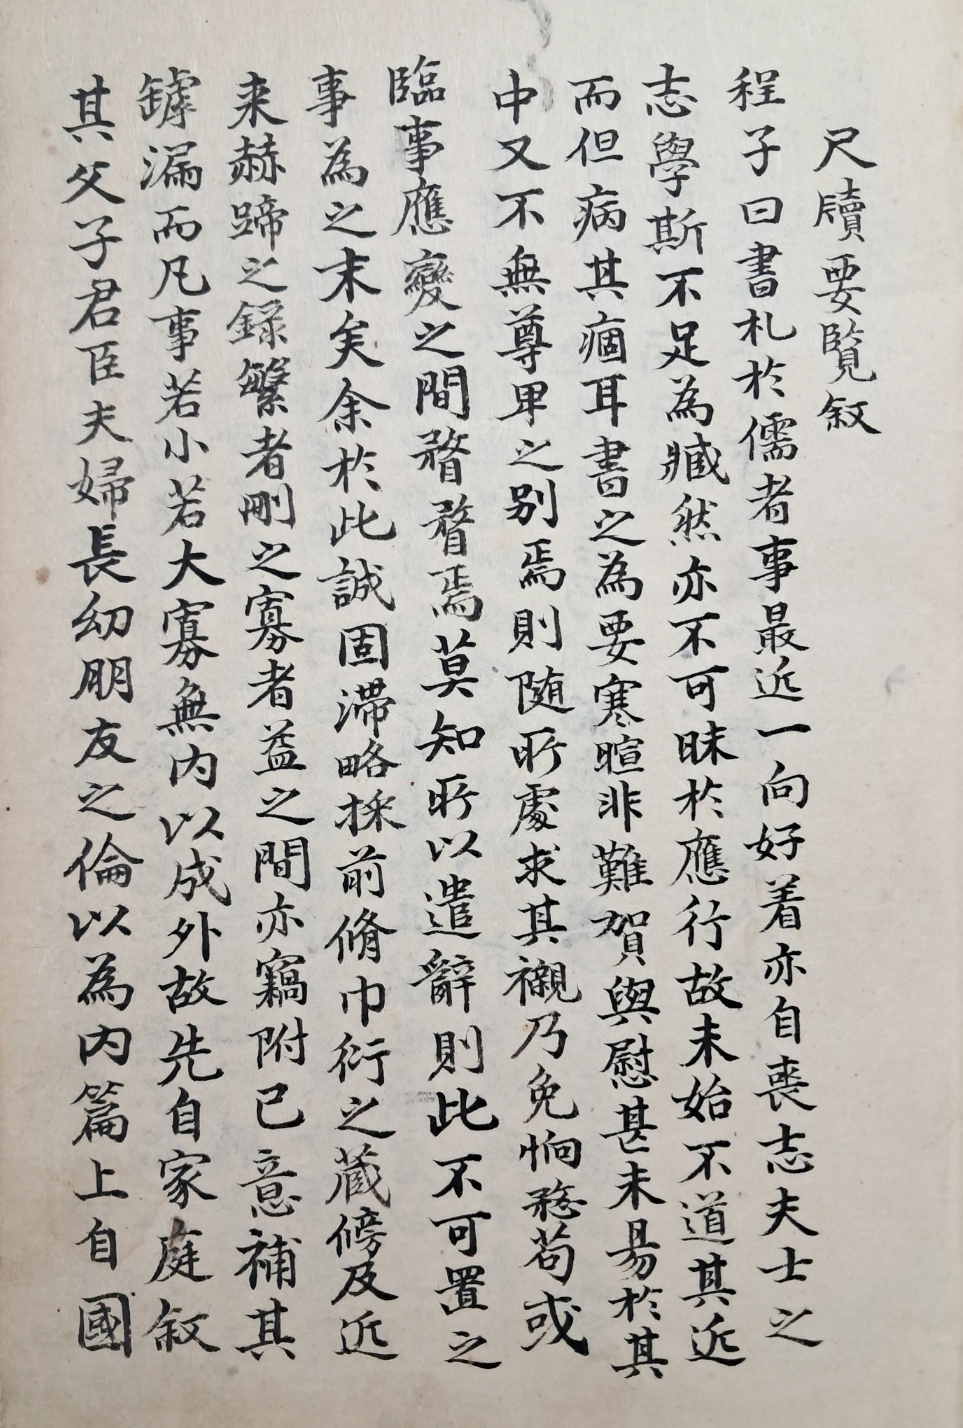 尺牘要覧敘
程子曰書札於儒者事最近一向好着亦自喪志夫士之
志學斯不足為臧然亦不可昧於應行故未始不道其近
而但病其痼耳書之為要寒暄非難賀與慰甚未易於其
中又不無尊卑之别焉則随所處求其襯乃免恫苟或
臨事應變之間瞀瞀焉莫知所以遣辭則此不可置之
事為之末矣余於此誠固滯略採前脩巾衍之蔵傍及近
来赫蹏之録繁者刪之寡者益之間亦竊附已意補其
罅漏而凡事若小若大寡無内以成外故先自家庭敘
其父子君臣夫婦長幼朋友之倫以為内篇上自國